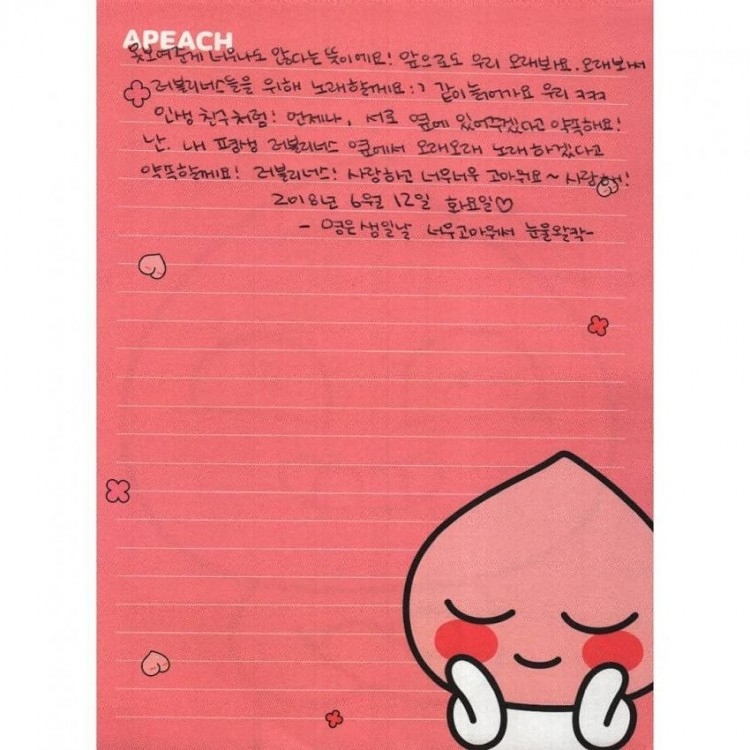 APEACH
못보여준게 너무나도 많다는 뜻이에요! 앞으로도 우리 오래봐요. 오래봐서
러블리너스들을 위해 노래할게요 :) 같이늙어가요 우리 ㅋㅋㅋ
인생 친구처럼! 언제나, 서로 옆에 있어주겠다고 약뚝해요!
난. 내 평생 러블리너스 옆에서 오래오래 노래하겠다고
약뚝할께요! 러블리너스! 사랑하고 너무너무 고마워요~ 사랑해!
2018년 6월 12일 화요일♡
- 명은생일날 너무고마워서 눈물왈칵-